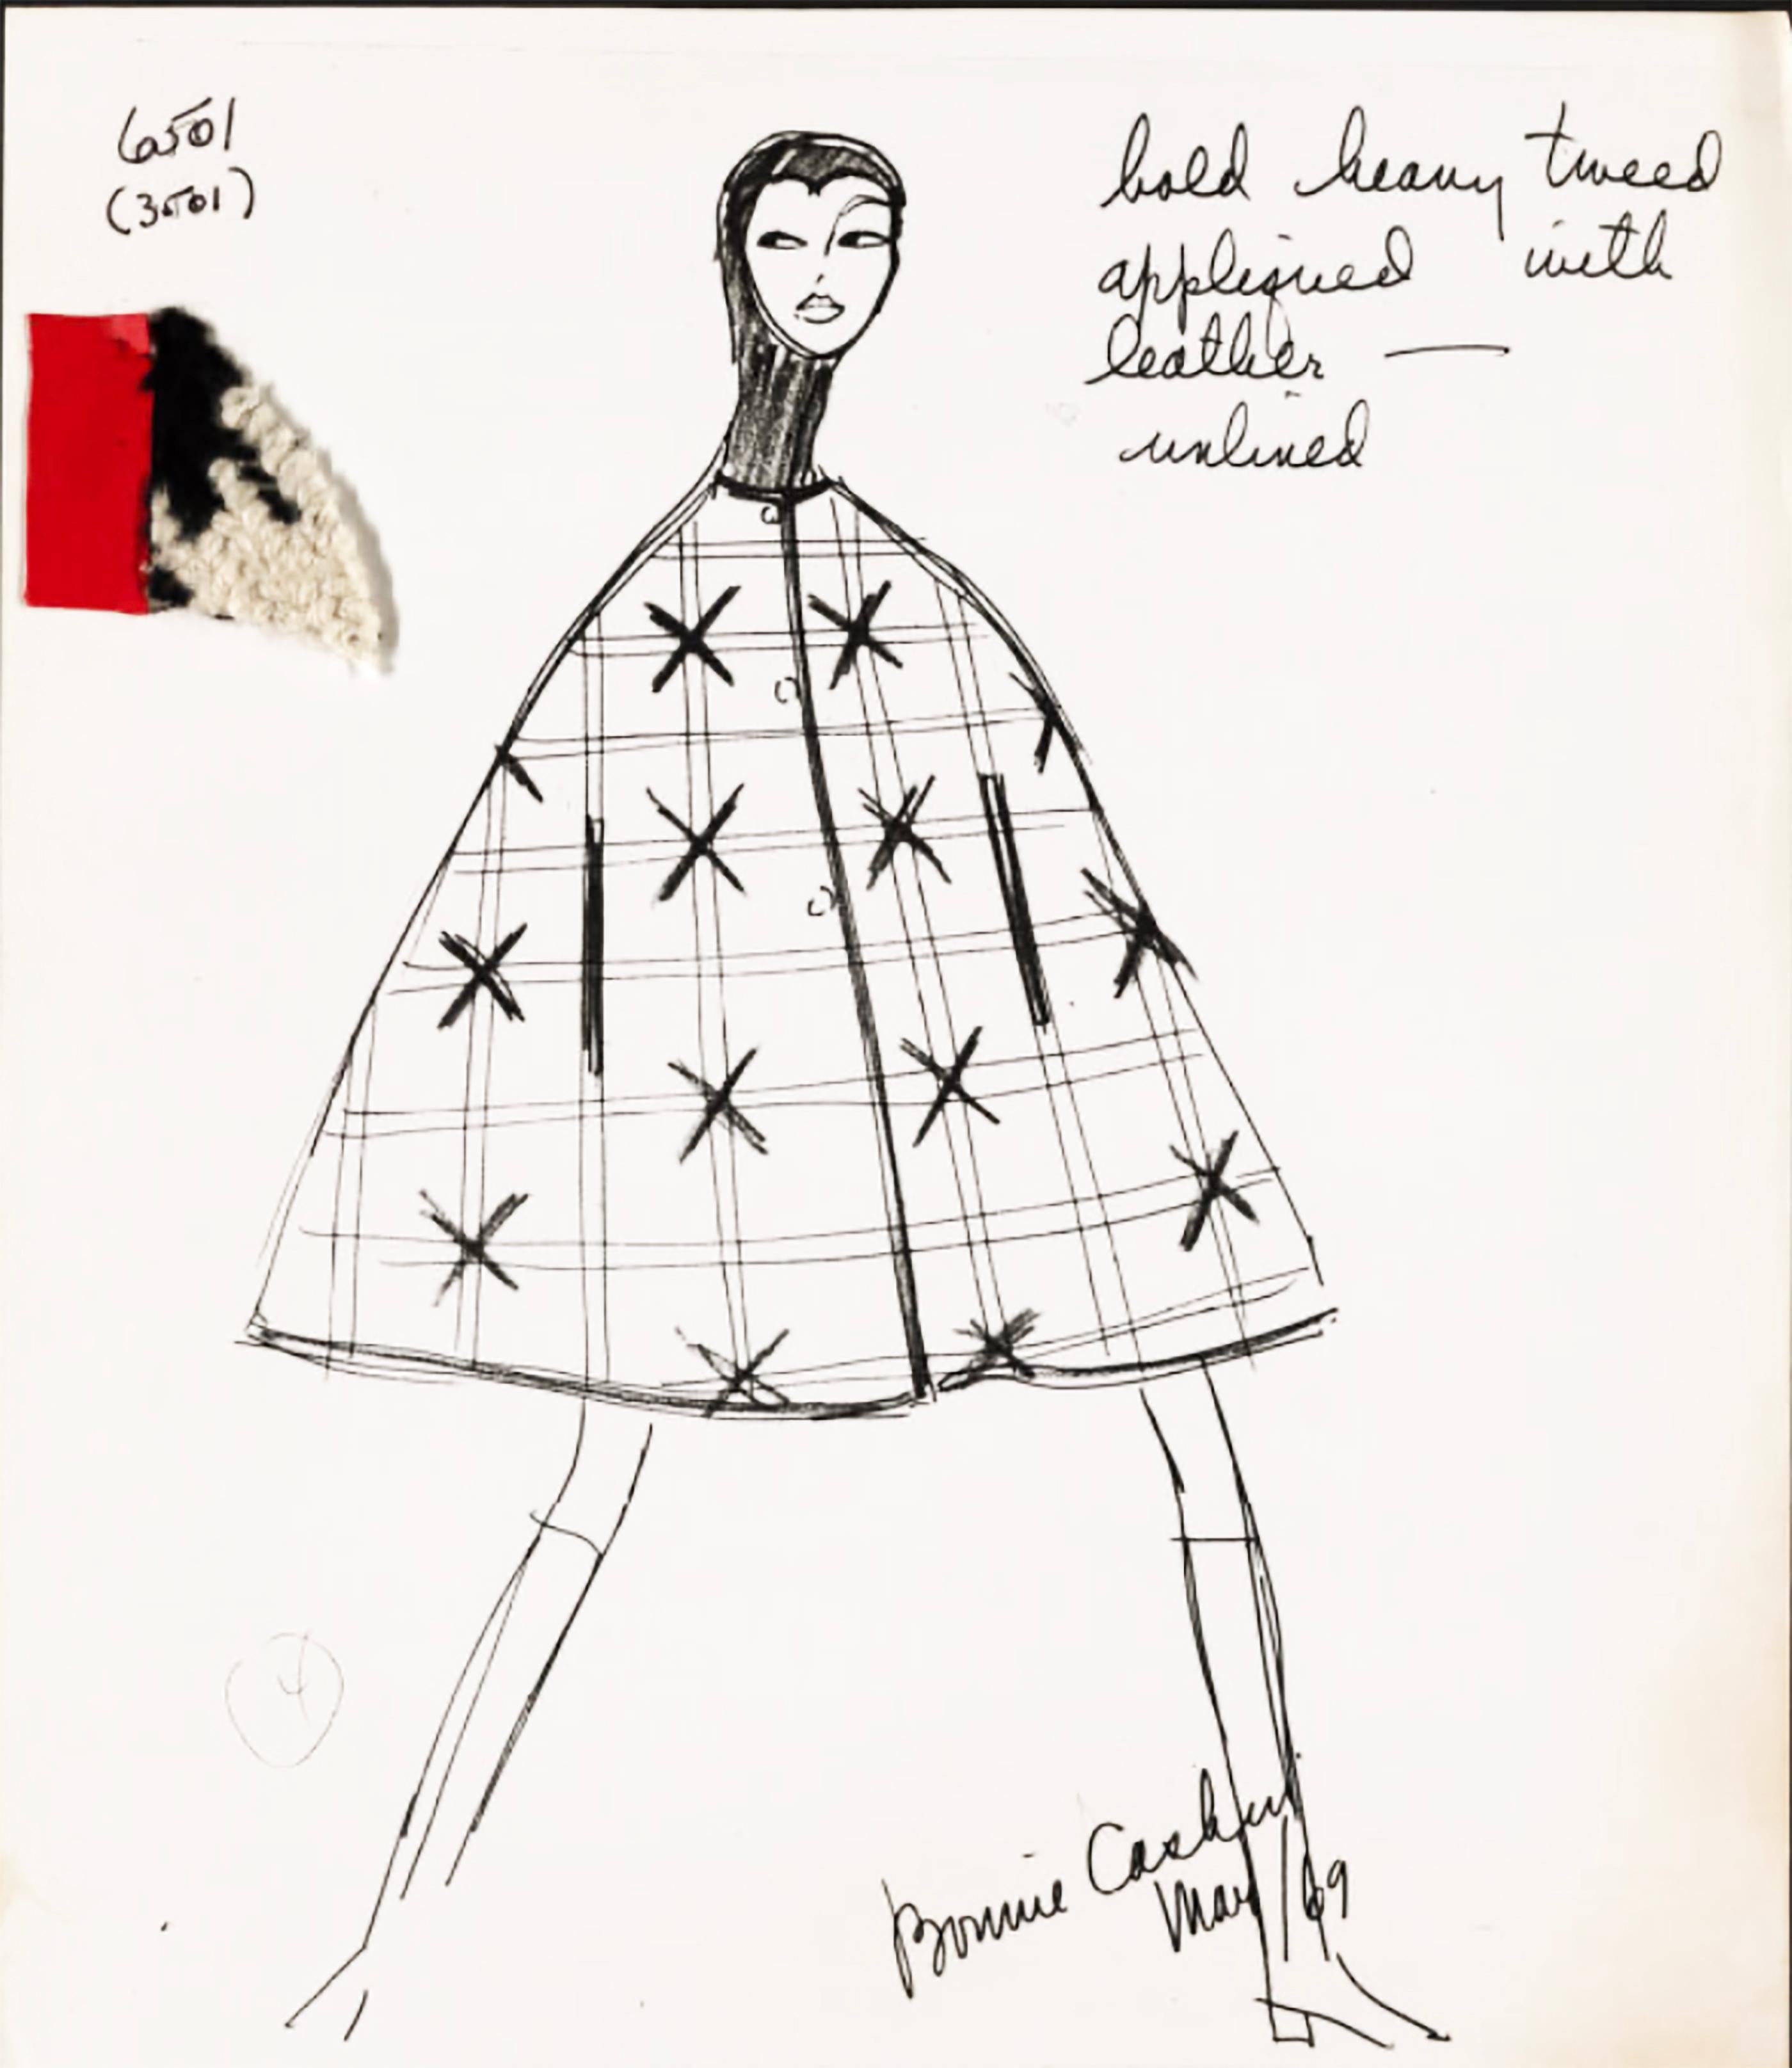 6501
(3501)
bold heavy tweed
appliqued with
leather —
unlined
4
Bonnie Cashin
Mar 69